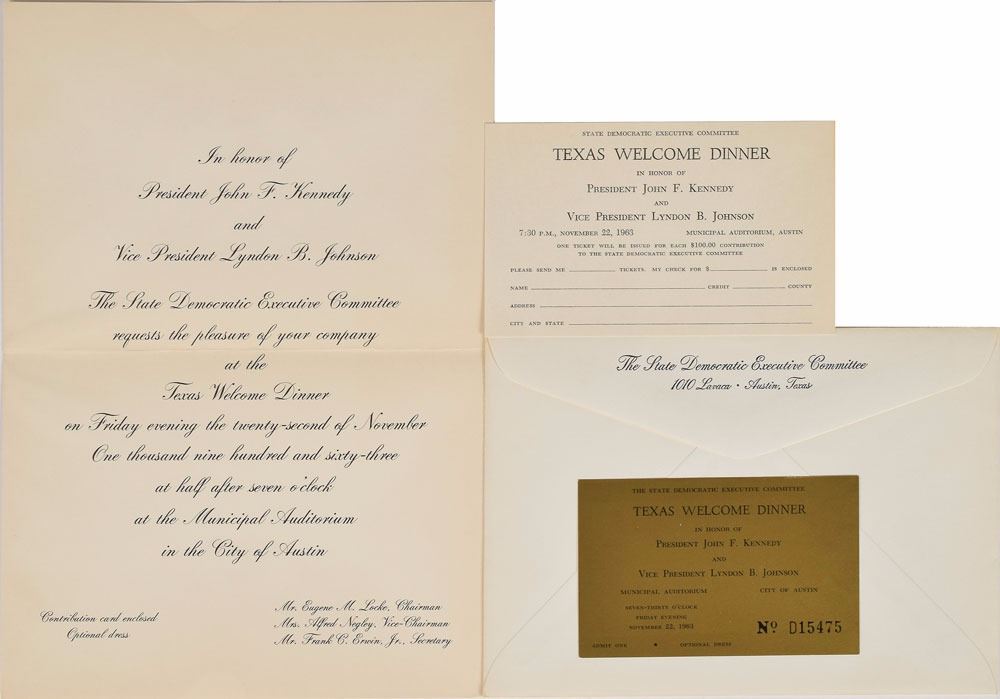 In honor of
President John F. Kennedy
and
Vice President Lyndon B. Johnson
The State Democratic Executive Committee
requests the pleasure of your company
at the
Texas Welcome Dinner
on Friday evening the twenty-second of November
One thousand nine hundred and sixty-three
at half after seven o'clock
at the Municipal Auditorium
in the City of Austin
Contribution card enclosed
Optional dress
Mr. Eugene M. Locke, Chairman
Mrs. Alfred Negley, Vice-Chairman
Mr. Frank C. Erwin, Jr., Secretary
STATE DEMOCRATIC EXECUTIVE COMMITTEE
TEXAS WELCOME DINNER
IN HONOR OF
PRESIDENT JOHN F. KENNEDY
AND
VICE PRESIDENT LYNDON B. JOHNSON
7:30 P.M., NOVEMBER 22, 1963 MUNICIPAL AUDITORIUM, AUSTIN
ONE TICKET WILL BE ISSUED FOR EACH $100.00 CONTRIBUTION
TO THE STATE DEMOCRATIC EXECUTIVE COMMITTEE
PLEASE SEND ME TICKETS. MY CHECK FOR $ IS ENCLOSED
NAME CREDIT COUNTY
ADDRESS
CITY AND STATE
The State Democratic Executive Committee
1010 Lavaca • Austin, Texas
THE STATE DEMOCRATIC EXECUTIVE COMMITTEE
TEXAS WELCOME DINNER
IN HONOR OF
PRESIDENT JOHN F. KENNEDY
AND
VICE PRESIDENT LYNDON B. JOHNSON
MUNICIPAL AUDITORIUM CITY OF AUSTIN
SEVEN-THIRTY O'CLOCK
FRIDAY EVENING
NOVEMBER 22, 1963
Nº 015475
ADMIT ONE • OPTIONAL DRESS